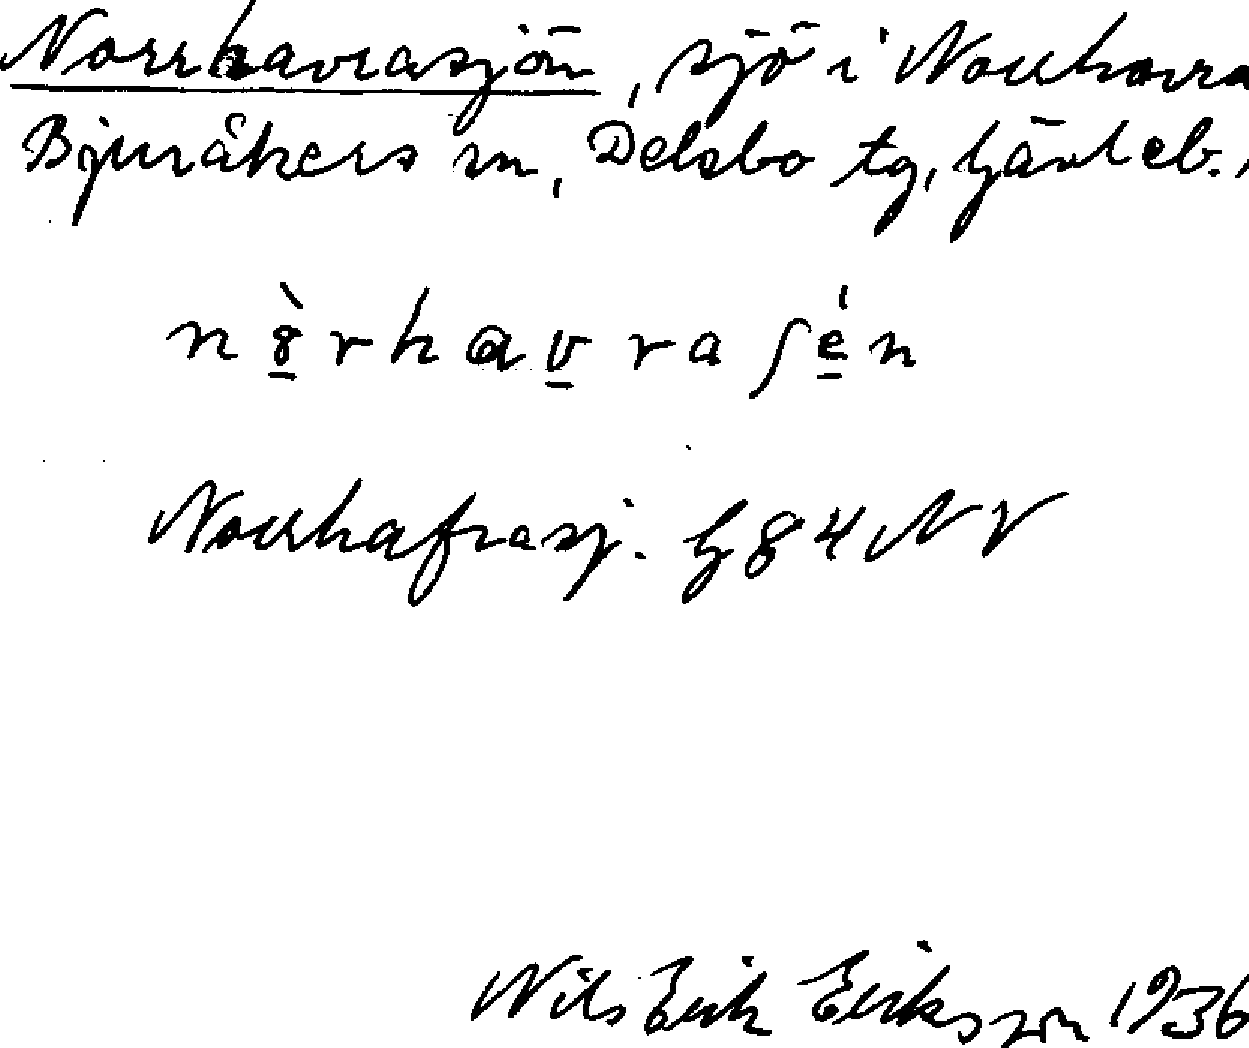 Norrhavrasjön, sjö i Norrhavra
Bjuråkers sn, Delsbo tg, Gävleb.,
n ò̱ r h a v̱ r a ʃ é̱ n
Norrhafrasj. G 84 NV
Nils Erik Eriksson 1936